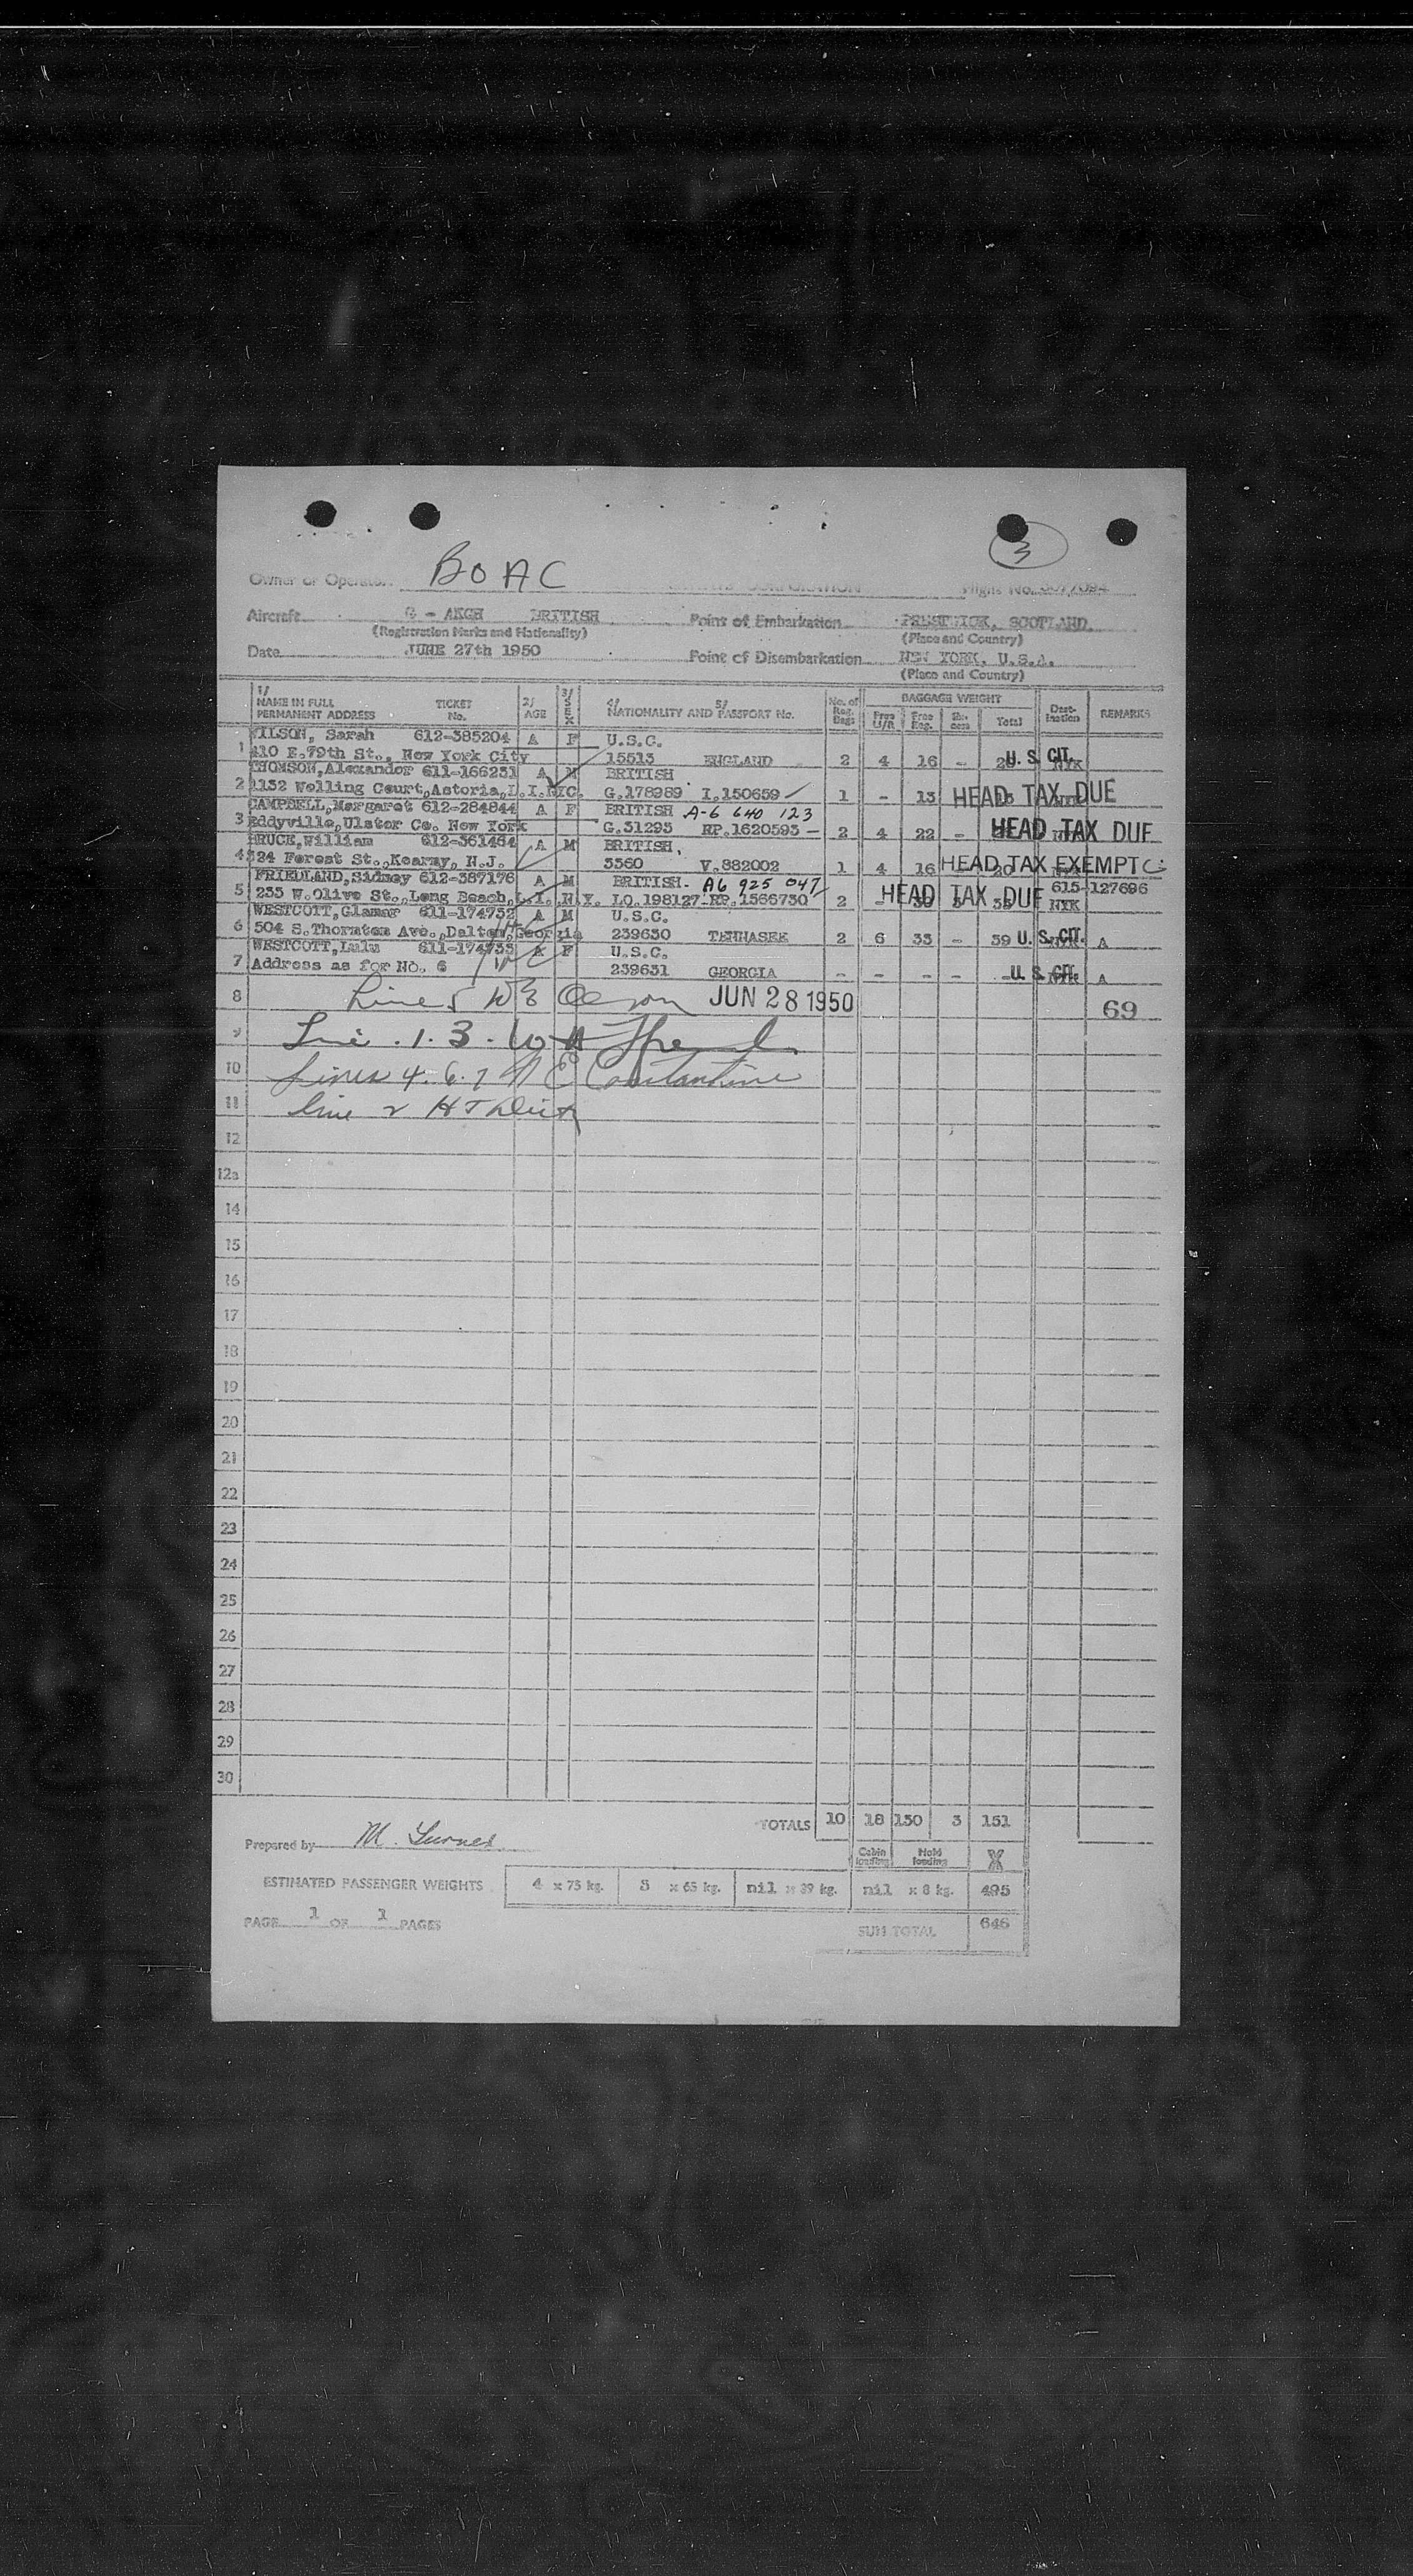 3
Owner or Operator BOAC CORPORATION Flight No.
Aircraft G - AKGH BRITISH Point of Embarkation PRESTWICK, SCOTLAND.
(Registration Marks and Nationality) (Place and Country)
Date JUNE 27th 1950 Point of Disembarkation NEW YORK, U.S.A.
(Place and Country)
1/ NAME IN FULL PERMANENT ADDRESS TICKET No. 2/ AGE 3/ SEX 4/ 5/ NATIONALITY AND PASSPORT No. No. of Reg. Bags BAGGAGE WEIGHT Free U/R Free Reg. Ex-cess Total Dest-ination REMARKS
WILSON, Sarah 612-385204 A F U.S.C.
1 410 E.79th St., New York City 15513 ENGLAND 2 4 16 - U. S. CIT. NYK
THOMSON,Alexander 611-166231 A M BRITISH
2 1132 Welling Court,Astoria,L.I.NYC. G.178989 I.150659 1 - 13 HEAD TAX DUE
CAMPBELL,Margaret 612-284844 A F BRITISH A-6 640 123
3 Eddyville,Ulster Co. New York G.31293 RP.1620593 2 4 22 - HEAD TAX DUE
BRUCE,William 612-361464 A M BRITISH.
4 324 Forest St.,Kearny, N.J. 3360 V.882002 1 4 16 HEAD TAX EXEMPT C
FRIEDLAND,Sidney 612-387176 A M BRITISH. A6 925 047 615-127696
5 235 W.Olive St.,Long Beach,L.I.,N.Y. LO.198127.RP.1566730 2 - HEAD TAX DUE NYK
WESTCOTT,Glamar 611-174752 A M U.S.C.
6 504 S.Thornton Ave.,Dalton,Georgia 239630 TENNASEE 2 6 33 - 39 U. S. CIT. A
WESTCOTT,Lulu 611-174753 A F U.S.C.
7 Address as for No. 6 239631 GEORGIA - - - - - U. S. CIT. A
8 Line 5 JUN 28 1950 69
9 Line . 1. 3.
10 Lines 4. 6. 7 Constantine
11 line 2
12
12a
14
15
16
17
18
19
20
21
22
23
24
25
26
27
28
29
30
TOTALS 10 18 130 3 151
Prepared by M. Cabin loading Hold loading X
ESTIMATED PASSENGER WEIGHTS 4 x 75 kg. 3 x 65 kg. nil x 39 kg. nil x 8 kg. 495
PAGE 1 OF 1 PAGES SUM TOTAL 646